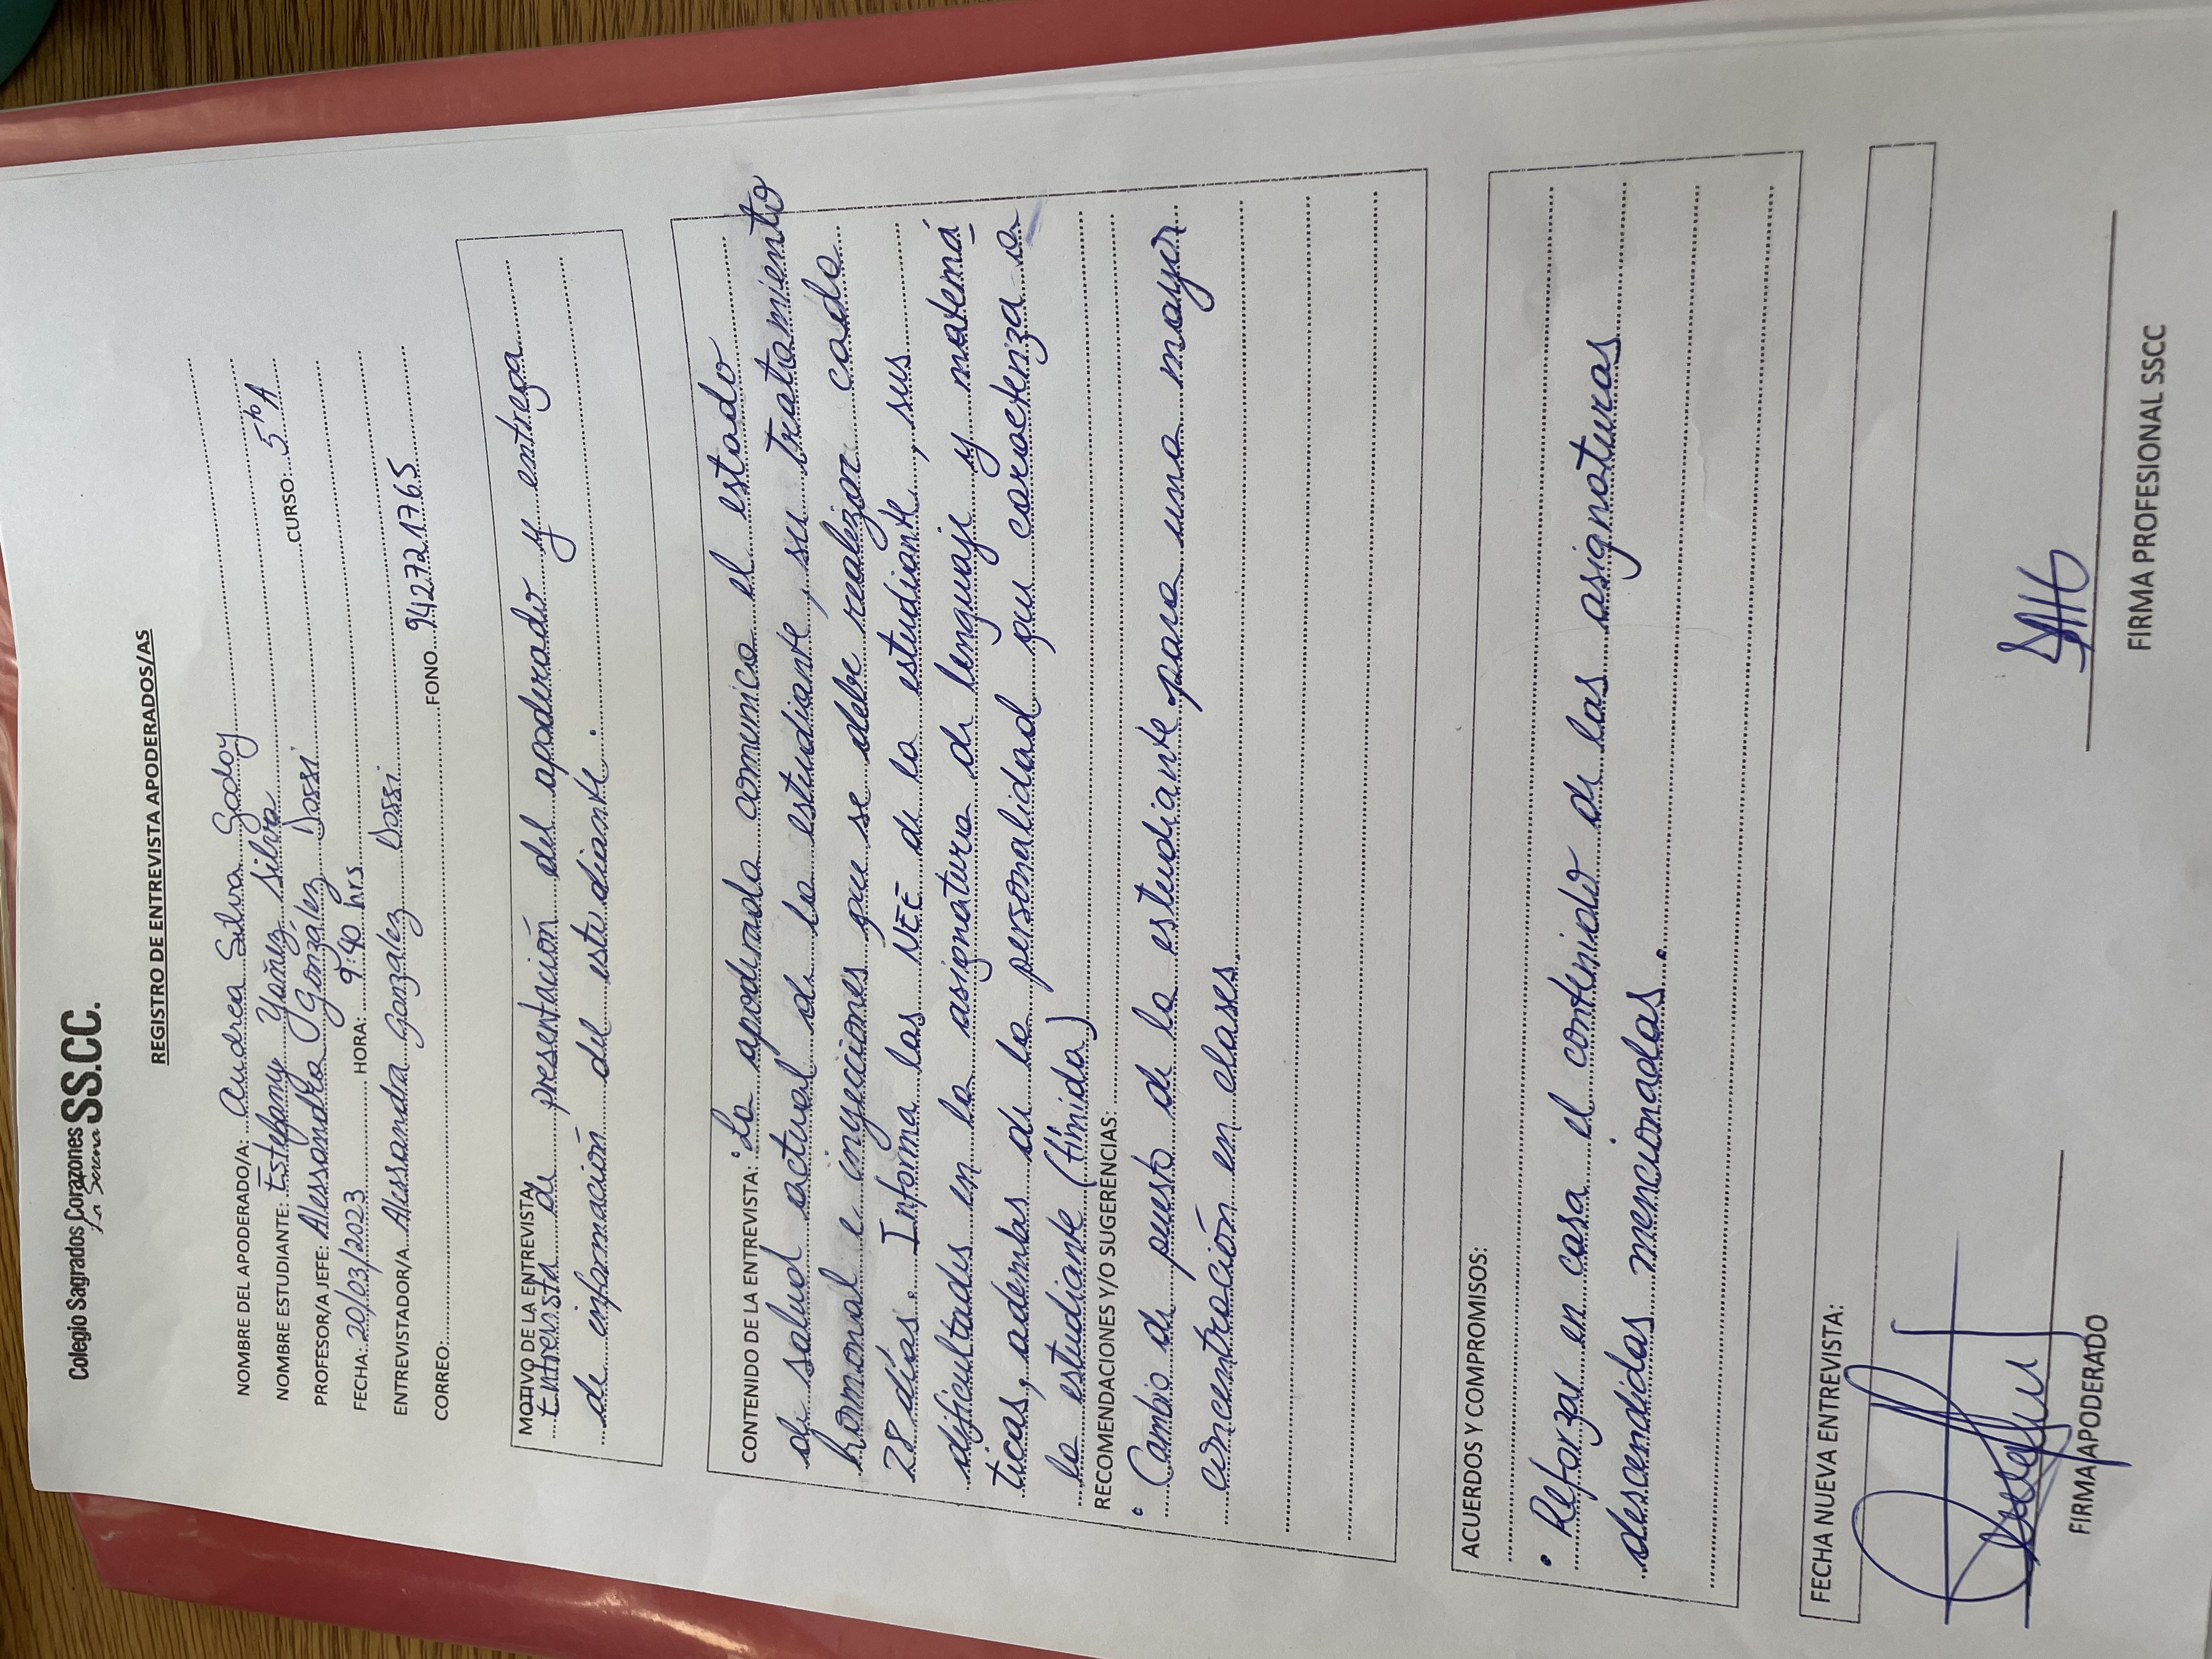 Colegio Sagrados Corazones SS.CC.
La Serena
REGISTRO DE ENTREVISTA APODERADOS/AS
NOMBRE DEL APODERADO/A: Andrea Silva Godoy
NOMBRE ESTUDIANTE: Estefany Yañez Silva CURSO: 5ºA
PROFESOR/A JEFE: Alessandra González Dassi
FECHA: 20/03/2023 HORA: 9:40 hrs
ENTREVISTADOR/A Alessandra González Dassi
CORREO: FONO 9427217.65
MOTIVO DE LA ENTREVISTA:
Entrevista de presentación del apoderado y entrega
de información del estudiante.
CONTENIDO DE LA ENTREVISTA: • La apoderada comunica el estado
de salud actual de la estudiante, su tratamiento
hormonal e inyecciones que se debe realizar cada
28 días. Informa las NEE de la estudiante, sus
dificultades en la asignatura de lenguaje y matemá
ticas, además de la personalidad que caracteriza a
la estudiante (tímida)
RECOMENDACIONES Y/O SUGERENCIAS:
• Cambio de puesto de la estudiante para una mayor
concentración en clases.
ACUERDOS Y COMPROMISOS:
• Reforzar en casa el contenido de las asignaturas
descendidas mencionadas.
FECHA NUEVA ENTREVISTA:
FIRMA APODERADO
FIRMA PROFESIONAL SSCC